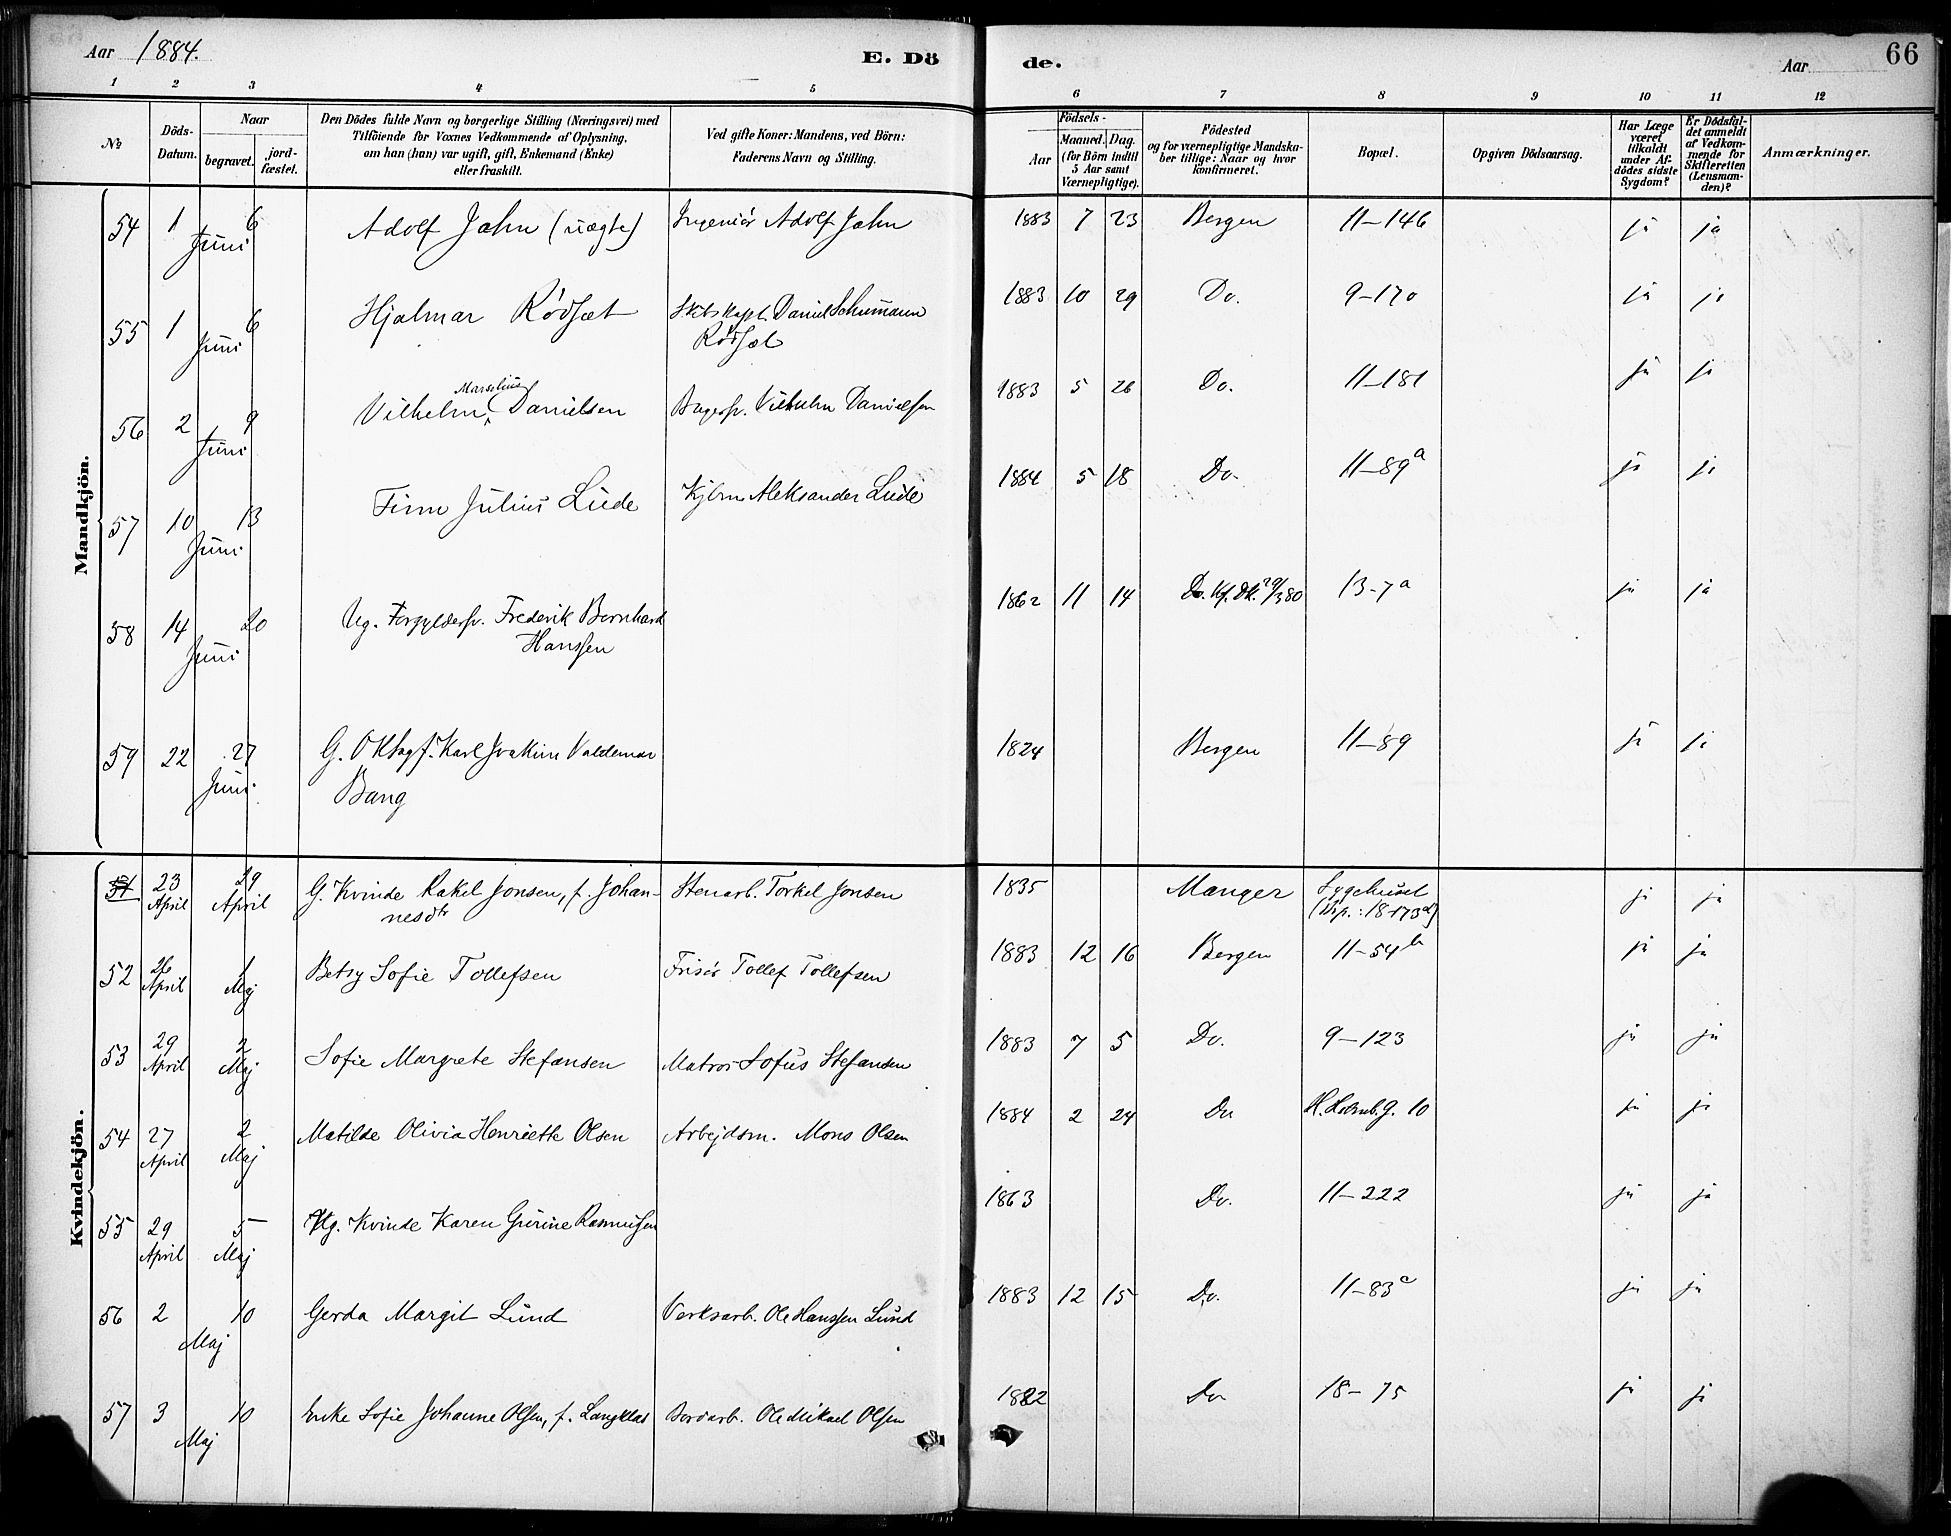 Aar 1884.
E. Dö
de.
Aar
66
1 2 3 4 5 6 7 8 9 10 11 12
№
Döds-
Datum.
Naar
begravet.
jord-
fæstet.
Den Dödes fulde Navn og borgerlige Stilling (Næringsvei) med
Tilföiende for Voxnes Vedkommende af Oplysning.
om han (hun) var ugift, gift, Enkemand (Enke)
eller fraskilt.
Ved gifte Koner: Mandens, ved Börn:
Faderens Navn og Stilling.
Födsels-
Aar
Maaned. Dag.
(for Börn indtil
5 Aar samt
Værnepligtige).
Födested
og for værnepligtige Mandska-
ber tillige: Naar og hvor
konfirmeret.
Bopæl.
Opgiven Dödsaarsag.
Har Læge
været
tilkaldt
under Af-
dödes sidste
Sygdom?
Er Dödsfal-
det anmeldt
af Vedkom-
mende for
Skifteretten
(Lensman-
den)?
Anmærkninger.
Mandkjön.
54 1 6 Juni Adolf Jahn (uægte) Ingeniör Adolf Jahn 1883 7 23 Bergen 11-146 ja ja
55 1 6 Juni Hjalmar Rødsæt Skibskapt. Daniel Schumann
Rødsæt 1883 10 29 Do. 9-170 ja ja
56 2 9 Juni Vilhelm Marselius Danielsen Bagersv. Vilhelm Danielsen 1883 5 26 Do. 11-181 ja ja
57 10 13 Juni Finn Julius Lude Aleksander Lude 1884 5 18 Do. 11-89a ja ja
58 14 20 Juni Ug. Forgyldersv. Frederik Bernhard
Hanssen 1862 11 14 Do. Kf. Dk. 29/3 80 13-7a ja ja
59 22 27 Juni G. Karl Joakim Valdemar
Bang 1824 Bergen 11-89 ja ja
Kvindekjön.
51 23 April 29 April G. Kvinde Rakel Jonsen, f. Johan-
nesdtr Stenarb. Torkel Jonsen 1835 Manger Sygehuset
(Bop.: 18-173d) ja ja
52 26 April 1 Maj Betsy Sofie Tollefsen Frisör Tollef Tollefsen 1883 12 16 Bergen 11-54b ja ja
53 29 April 2 Maj Sofie Margrete Stefansen Matros Sofus Stefansen 1883 7 5 Do. 9-123 ja ja
54 27 April 2 Maj Matilde Olivia Henriette Olsen Arbejdsm. Mons Olsen 1884 2 24 Do 10 ja ja
55 29 April 5 Maj Ug. Kvinde Karen Gurine Rasmussen 1863 Do. 11-222 ja ja
56 2 10 Maj Gerda Margit Lund Verksarb. Ole Hanssen Lund 1883 12 15 Do. 11-83c ja ja
57 3 10 Maj Enke Sofie Johanne Olsen, f. Langklas Ole Mikael Olsen 1822 Do 18-75 ja ja